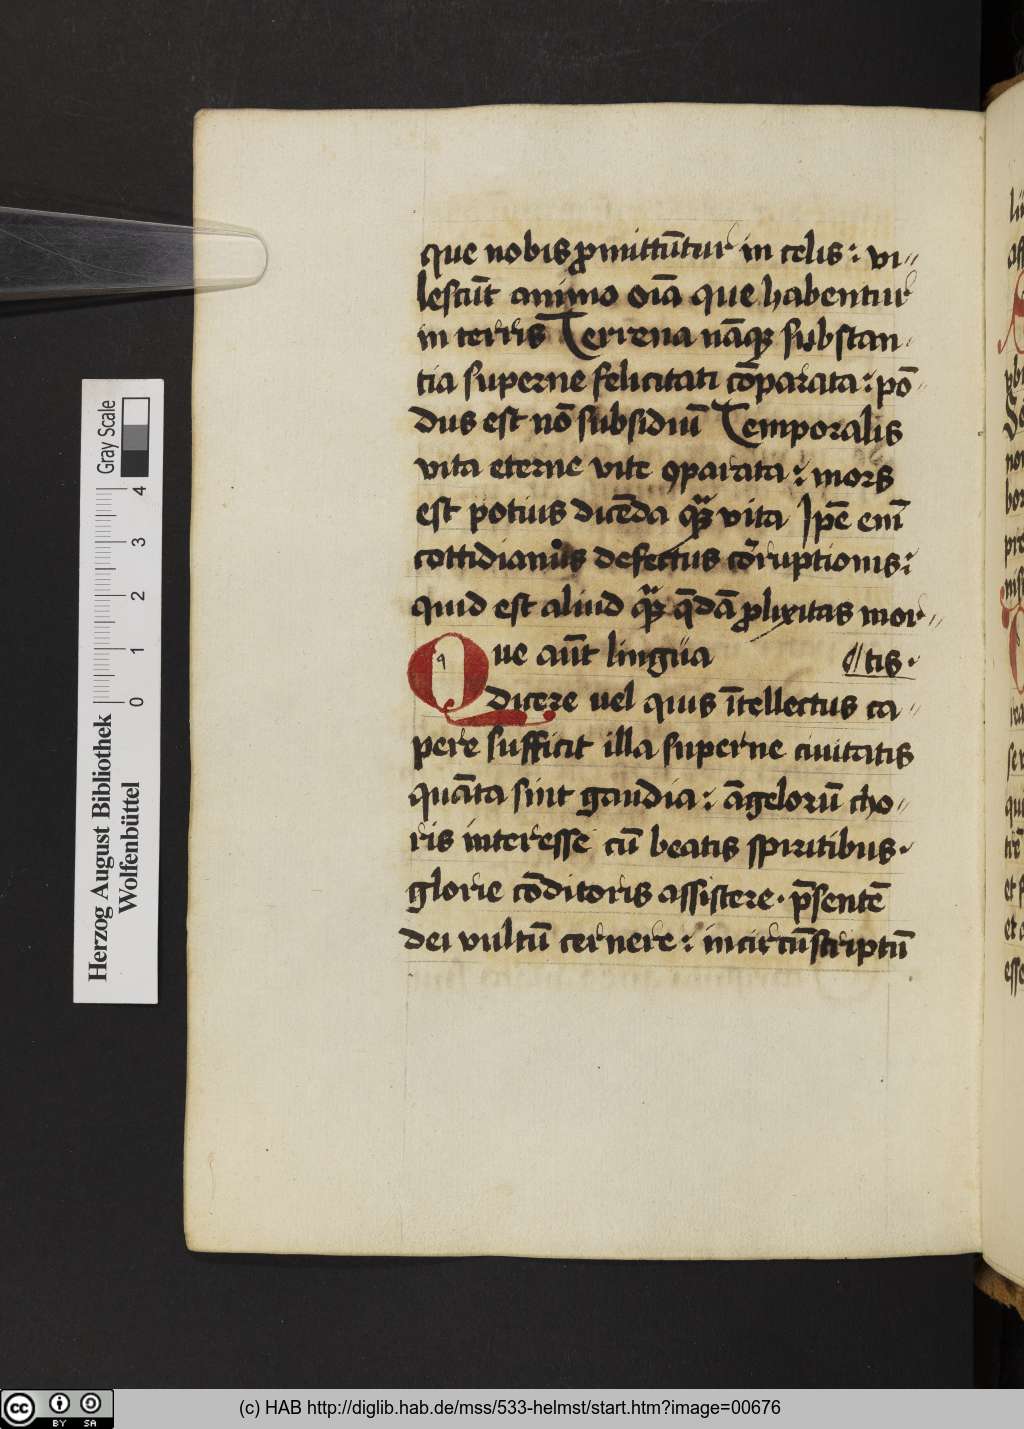 que nobis ꝓmittūtur in celis : vi〃
lescūt animo oīa que habentur
in terris Terrena nāqꝫ substan〃
tia superne felicitati cōparata : pō〃
dus est nō subsidiū Temporalis
vita eterne vite ꝯparata : mors
est potius dicēda qᷓꝫ vita Ipē enī
cottidianus defectus cōruptionis :
quid est aliud qᷓꝫ q̄dā ꝓlixitas mor〃
Que aūt lingua
tis.
dicere vel quis ītellectus ca〃
pere sufficit illa superne ciuitatis
quāta sint gaudia : āgelorū cho〃
ris interesse cū beatis spiritibus.
glorie cōditoris assistere. p̄sentē
dei vultū cernere : incircūscriptū
Gray Scale
0 1 2 3 4
Herzog August Bibliothek
Wolfenbüttel
cc BY SA
(c) HAB http://diglib.hab.de/mss/533-helmst/start.htm?image=00676